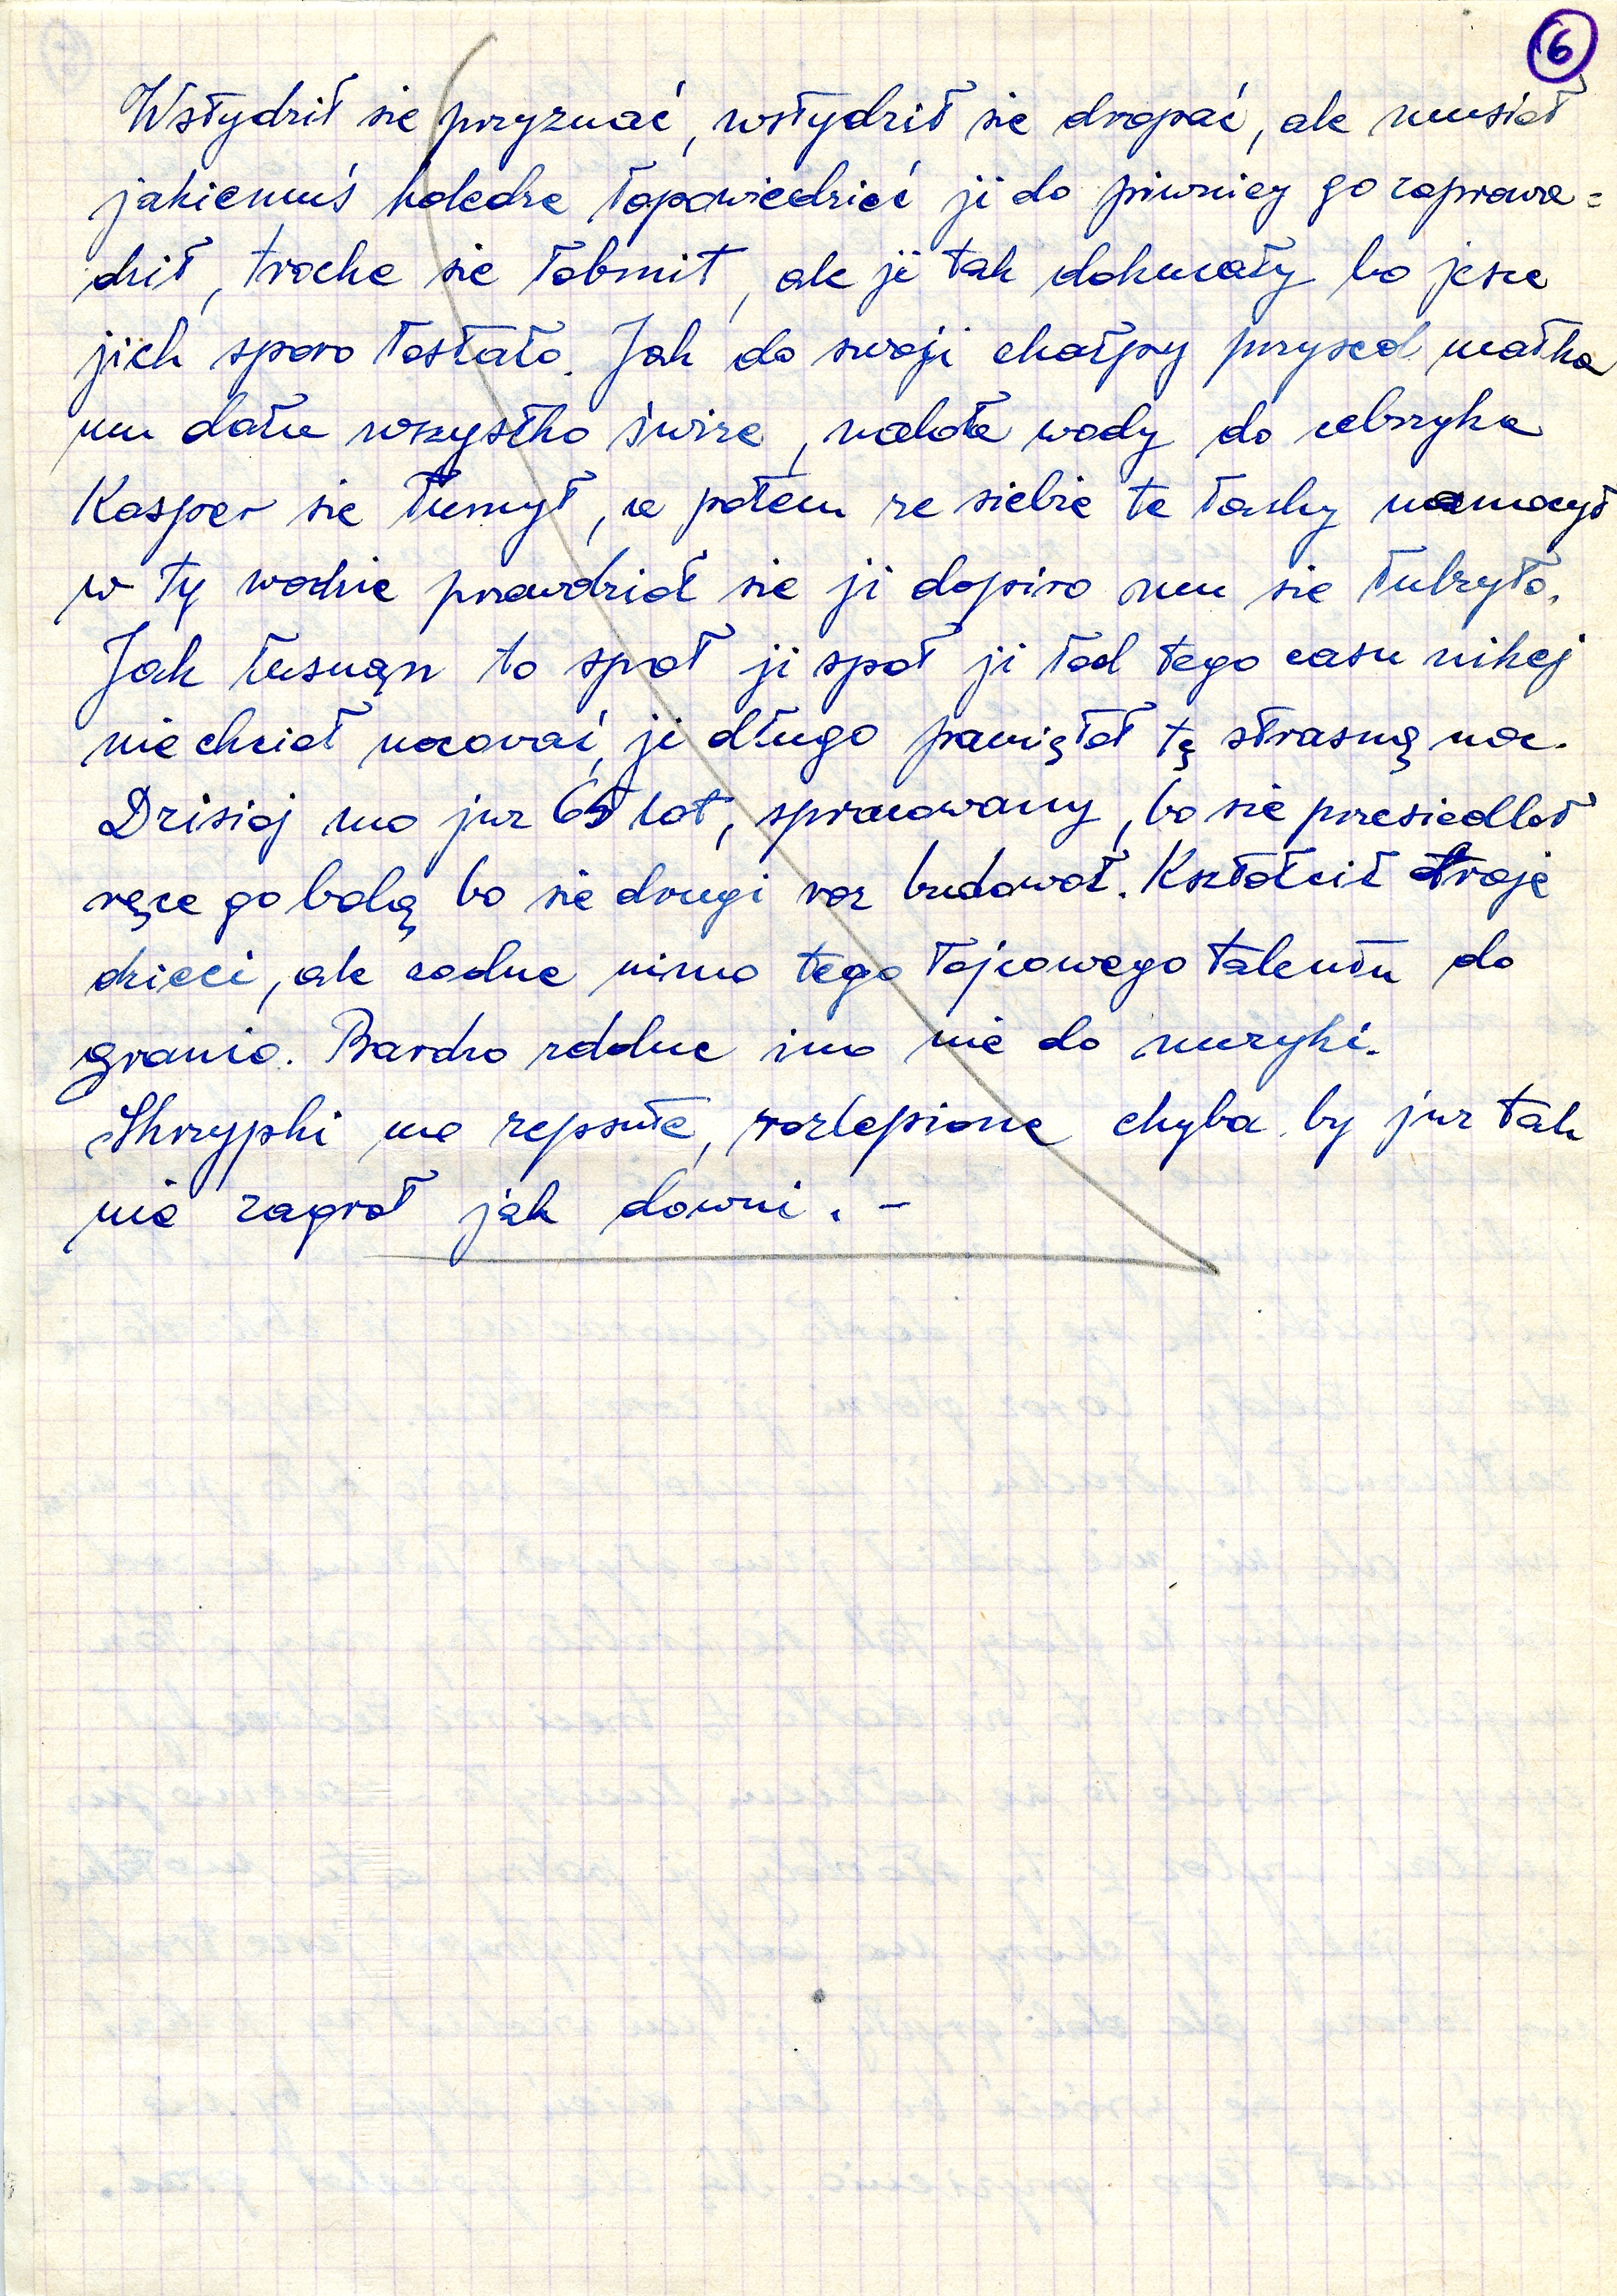 6
Wstydził sie przyznać, wstydził sie drapać, ale musioł
jakiemuś koledze łopowiedzieć ji do piwnicy go zaprowa=
dził, troche sie łobmit, ale ji tak dokucały bo jesce
jich sporo łostało. Jak do swoji chałpy przysed matka
mu dała wszystko świże, naloła wody do cebrzyka
Kasper sie łumył, a potem ze siebie te łachy namocył
w ty wodzie prawdzioł sie ji dopiro mu sie łulzyło.
Jak łusnąn to społ ji społ ji łod tego casu nikej
nie chcioł nocować, ji długo pamiętoł tę strasną noc.
Dzisioj mo juz 65 lot, spracowany, bo sie przesiedloł
ręce go bolą bo sie drugi roz budowoł. Kształcił troje
dzieci, ale zodne nimo tego łojcowego talentu do
granio. Bardzo zdolne ino nie do muzyki.
Skrzypki mo zepsute, rozlepione chyba by juz tak
nie zagroł jak downi. -